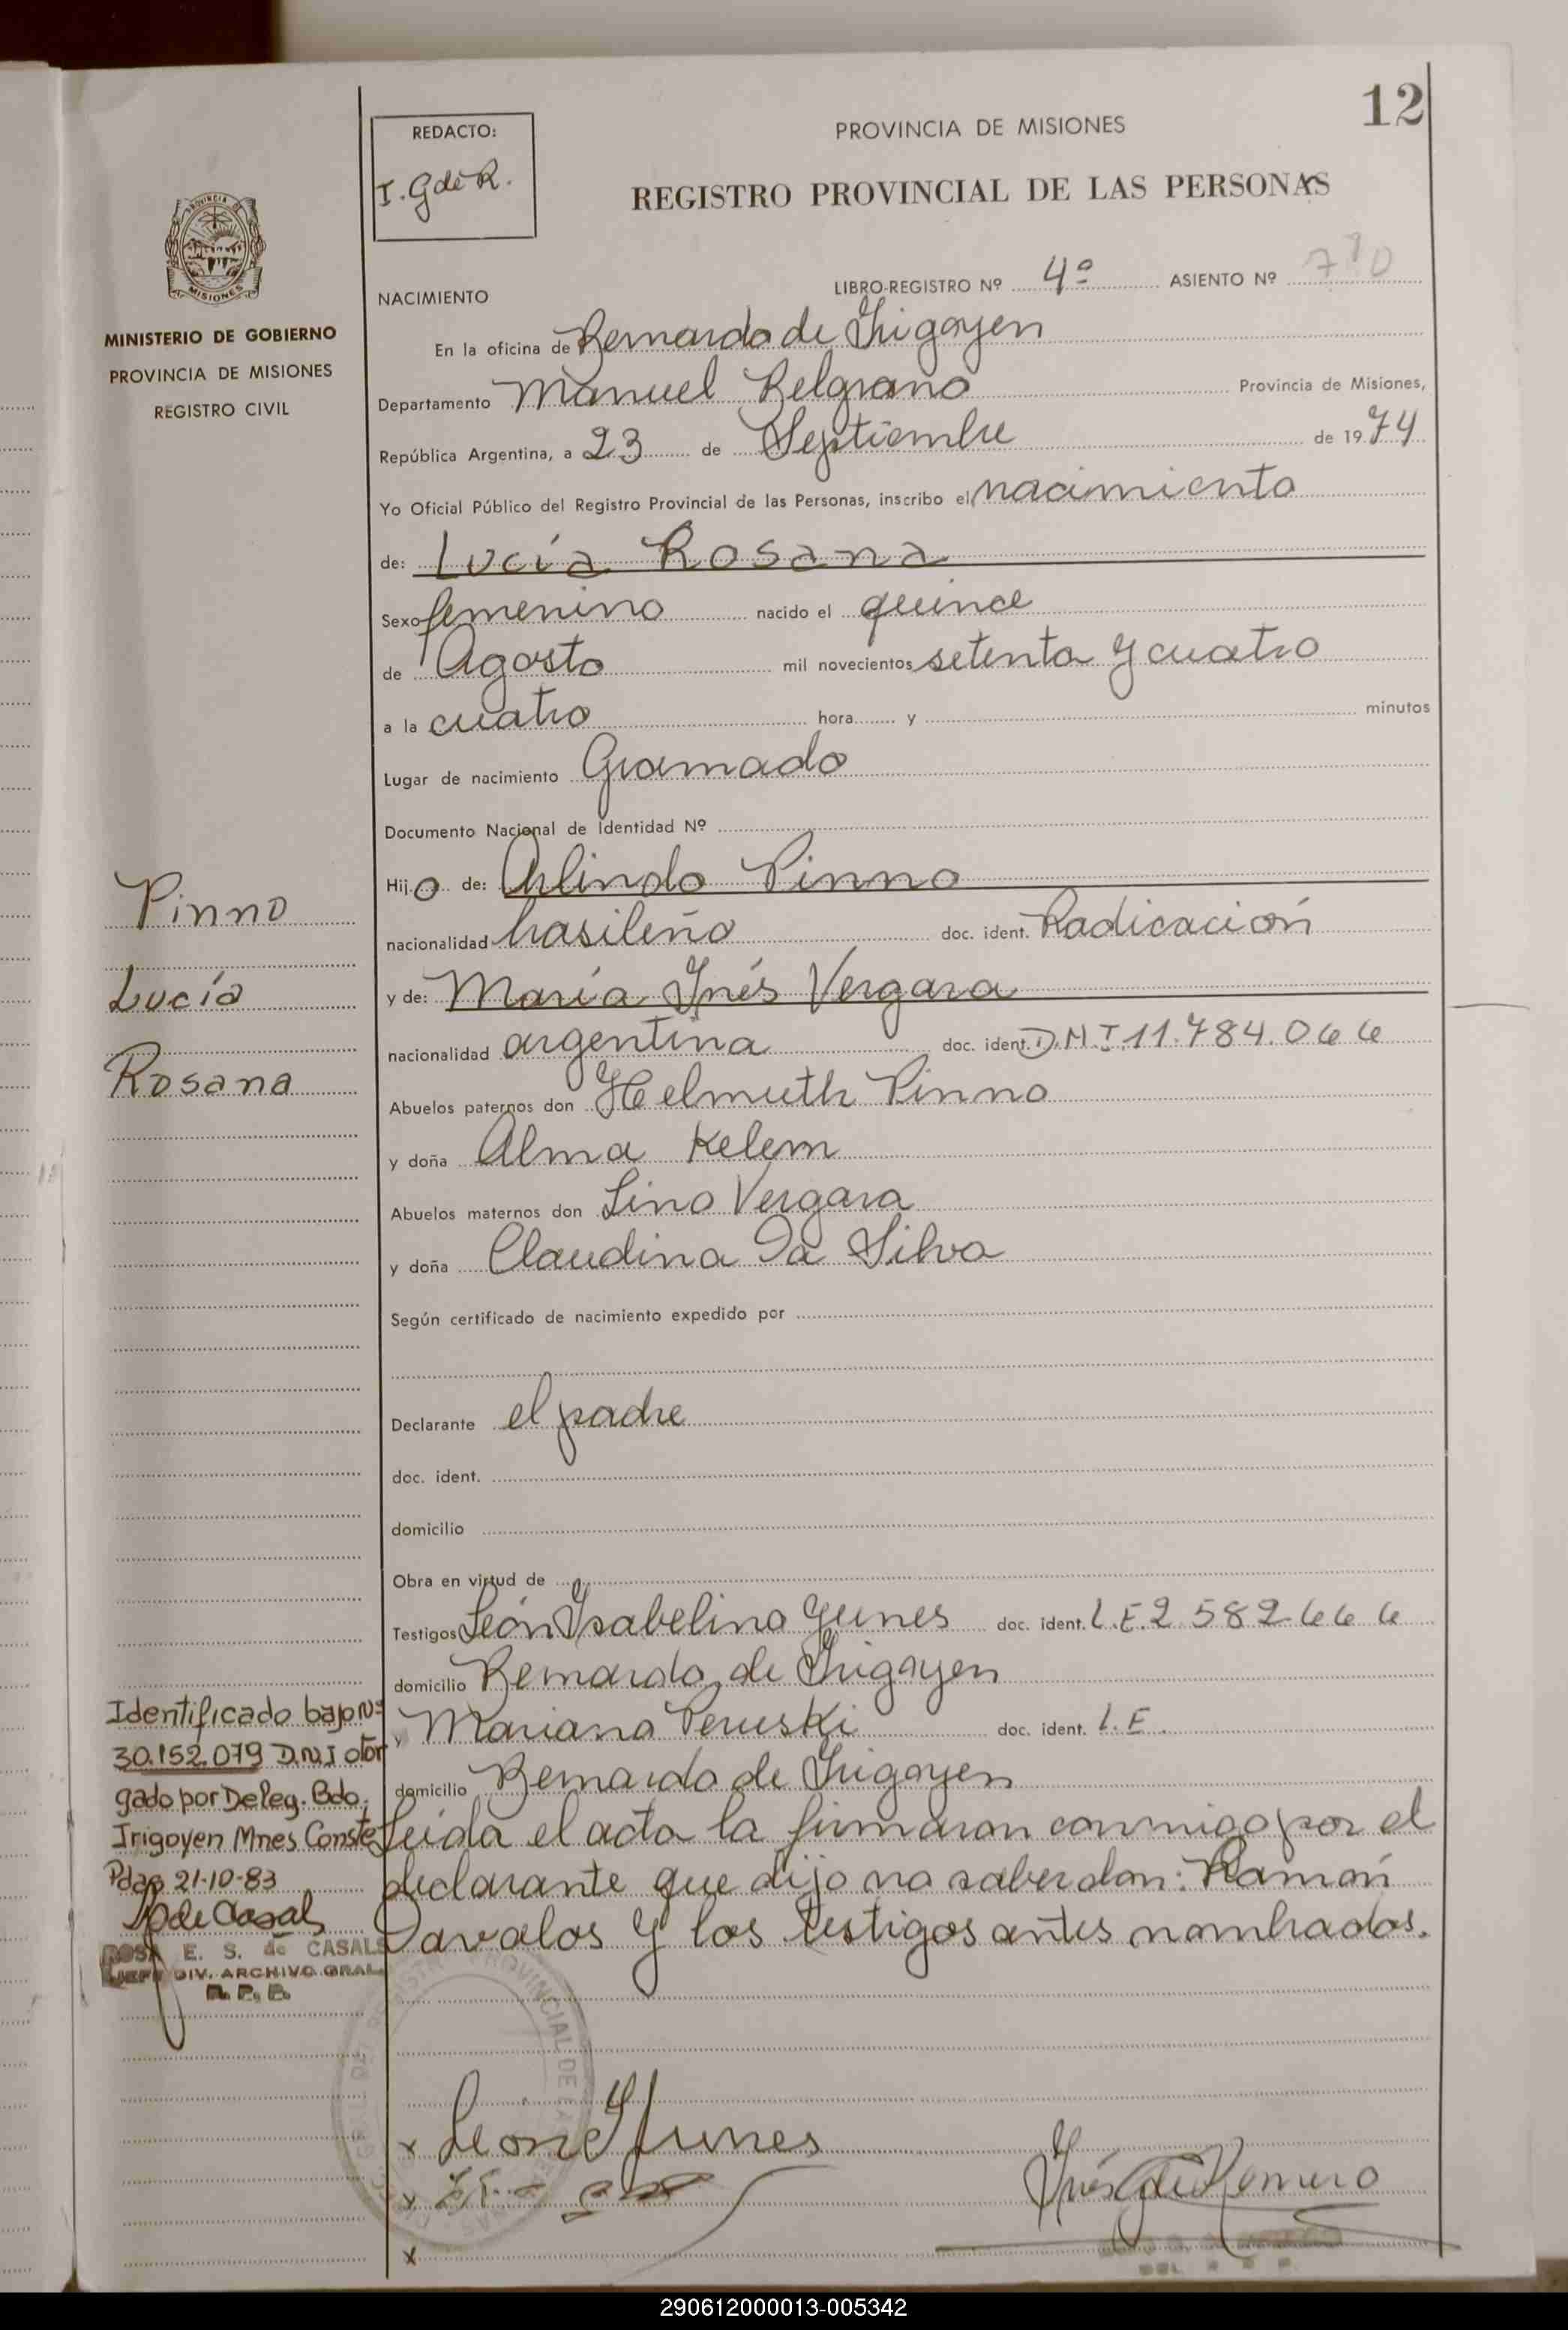 12
REDACTO:
I. G de R.
PROVINCIA DE MISIONES
REGISTRO PROVINCIAL DE LAS PERSONAS
PROVINCIA DE
MISIONES
MINISTERIO DE GOBIERNO
PROVINCIA DE MISIONES
REGISTRO CIVIL
NACIMIENTO
LIBRO-REGISTRO Nº 4º ASIENTO Nº
En la oficina de Bernardo de Irigoyen
Departamento Manuel Belgrano Provincia de Misiones,
República Argentina, a 23 de Septiembre de 1974
Yo Oficial Público del Registro Provincial de las Personas, inscribo el nacimiento
de: Lucía Rosana
Sexo femenino nacido el quince
de Agosto mil novecientos setenta y cuatro
a la cuatro hora y minutos
Lugar de nacimiento Gramado
Documento Nacional de Identidad Nº
Hijo de: Arlindo Pinno
nacionalidad brasileño doc. ident. Radicación
y de: María Inés Vergara
nacionalidad argentina doc. ident. D.N.I. 11.784.066
Abuelos paternos don Helmuth Pinno
y doña Alma Kelem
Abuelos maternos don Lino Vergara
y doña Claudina Da Silva
Según certificado de nacimiento expedido por
Declarante el padre
doc. ident.
domicilio
Obra en virtud de
Testigos León Isabelino Yunes doc. ident. L.E. 2 582 666
domicilio Bernardo de Irigoyen
y Mariano Peruski doc. ident. L.E.
domicilio Bernardo de Irigoyen
Leída el acta la firmaron conmigo por el
declarante que dijo no saber don: Ramón
Davalos y los testigos antes nombrados.
Pinno
Lucía
Rosana
Identificado bajo Nº
30.152.079 D.N.I otor
gado por Deleg. Bdo.
Irigoyen Mnes Conste
Pdas 21-10-83
ROSA E. S. de CASALS
JEFE DIV. ARCHIVO GRAL.
R. P. P.
x Leone Yunes
x
x
Inés G de Romero
290612000013-005342